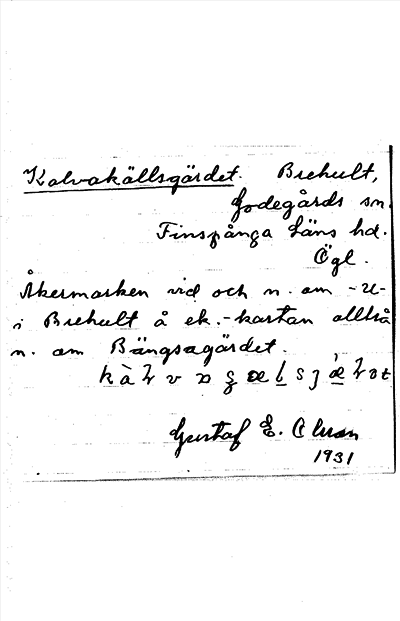 Kalvakällsgärdet. Brehult,
Godegårds sn.
Finspånga Läns hd.
Ögl.
Åkermarken vid och n. om -u-
i Brehult å ek.-kartan alltså
n. om Bängsagärdet.
Gustaf E. Olsson
1931